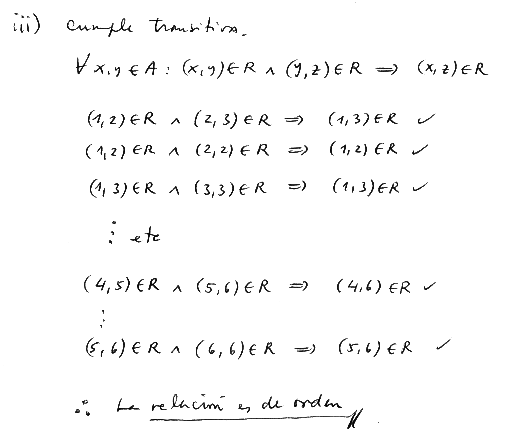 iii) cumple transitiva.
∀ x,y ∈ A : (x,y) ∈ R ∧ (y,z) ∈ R ⇒ (x,z) ∈ R
(1,2) ∈ R ∧ (2,3) ∈ R ⇒ (1,3) ∈ R ✓
(1,2) ∈ R ∧ (2,2) ∈ R ⇒ (1,2) ∈ R ✓
(1,3) ∈ R ∧ (3,3) ∈ R ⇒ (1,3) ∈ R ✓
⋮ etc
(4,5) ∈ R ∧ (5,6) ∈ R ⇒ (4,6) ∈ R ✓
⋮
(5,6) ∈ R ∧ (6,6) ∈ R ⇒ (5,6) ∈ R ✓
∴ La relación es de orden